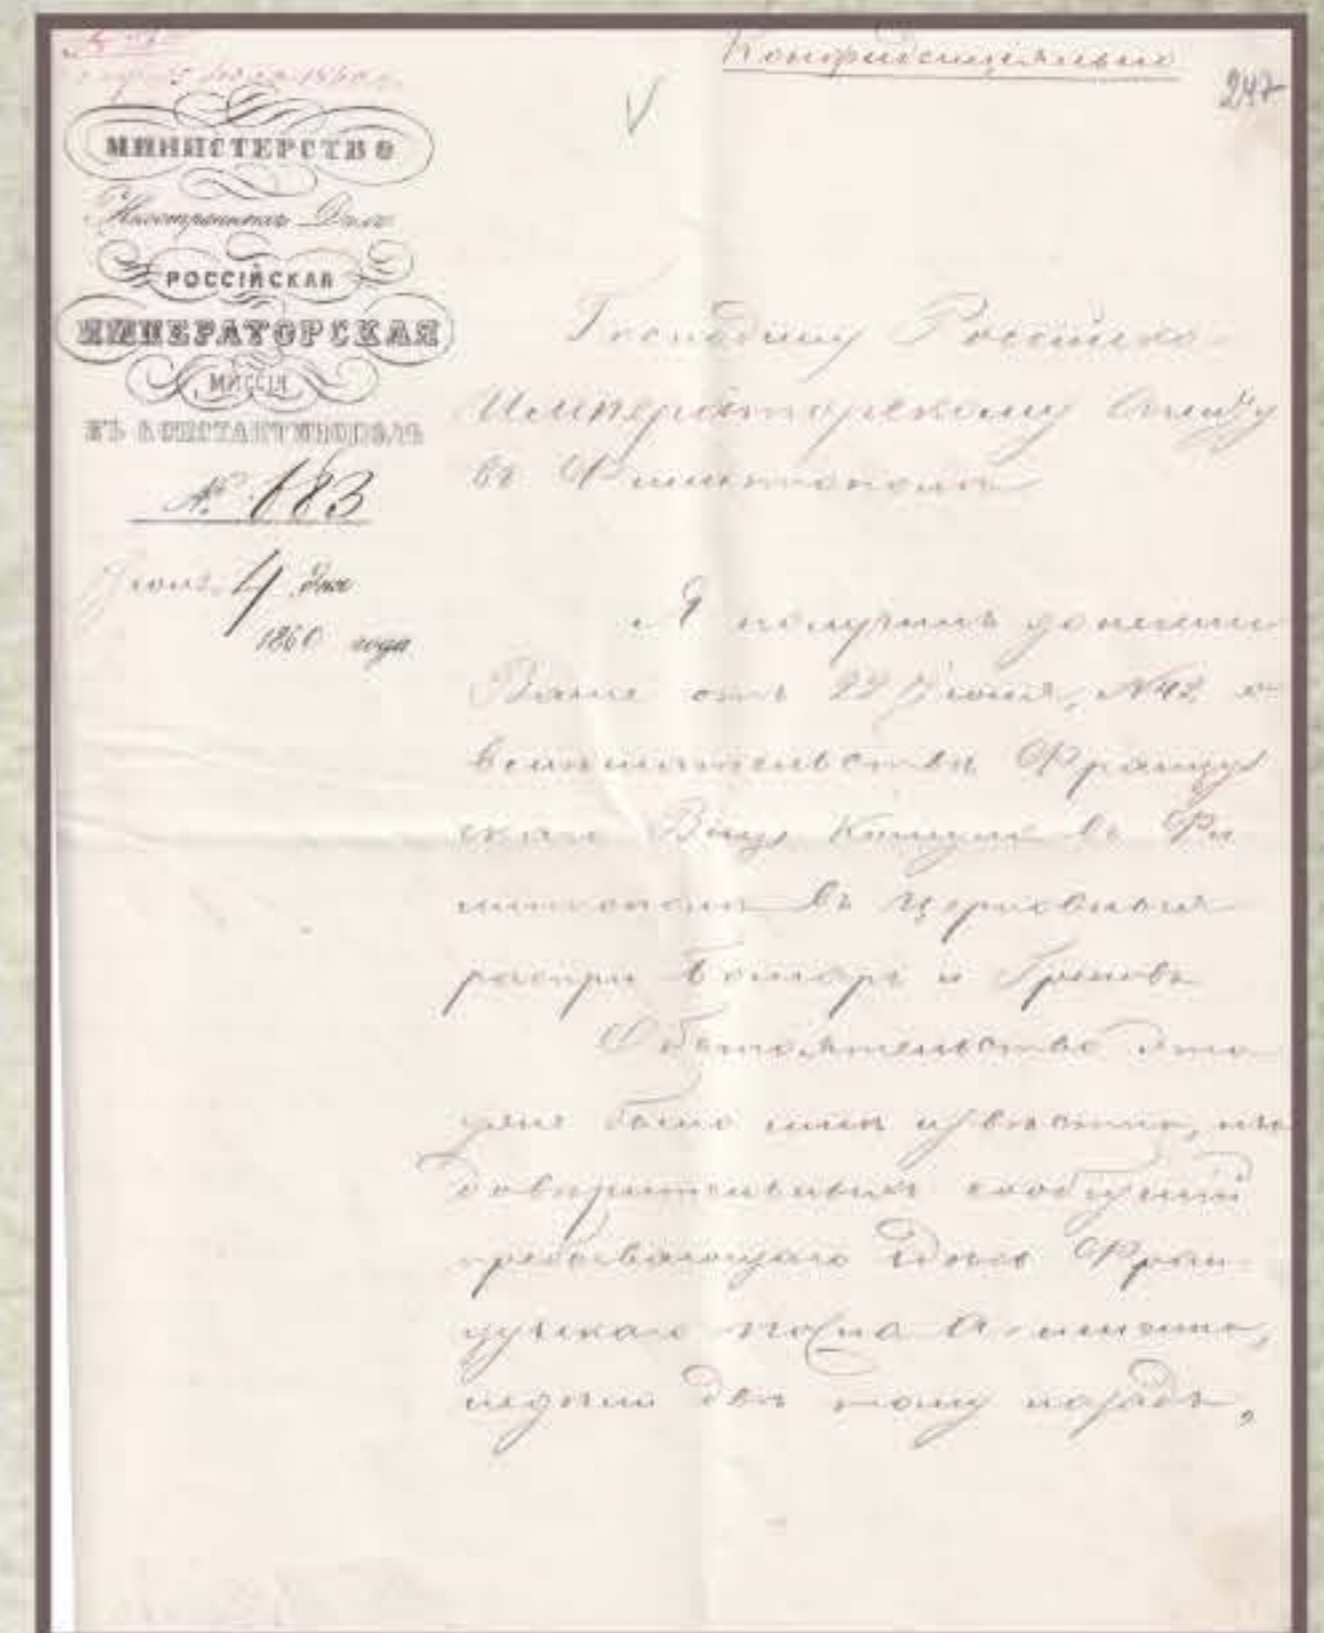 Конфиденціяльно
247
МИНИСТЕРСТВО
Иностранныхъ Дѣлъ
РОССІЙСКАЯ
ИМПЕРАТОРСКАЯ
МИССІЯ
ВЪ КОНСТАНТИНОПОЛѢ
№ 683
Іюля 4 дня
1860 года
Господину Россійско-
Императорскому
въ Филиппополѣ
Я получилъ донесеніе
Ваше отъ 22 Іюня, №42, о
вмѣшательствѣ Францу
скаго Вице Консула въ Фи
липпополѣ въ церковныя
распри Болгаръ и Грековъ
Обстоятельство это
уже было мнѣ извѣстно, изъ
довѣрительныхъ сообщеній
пребывающаго здѣсь Фран-
цузскаго
недѣли двѣ тому назадъ,